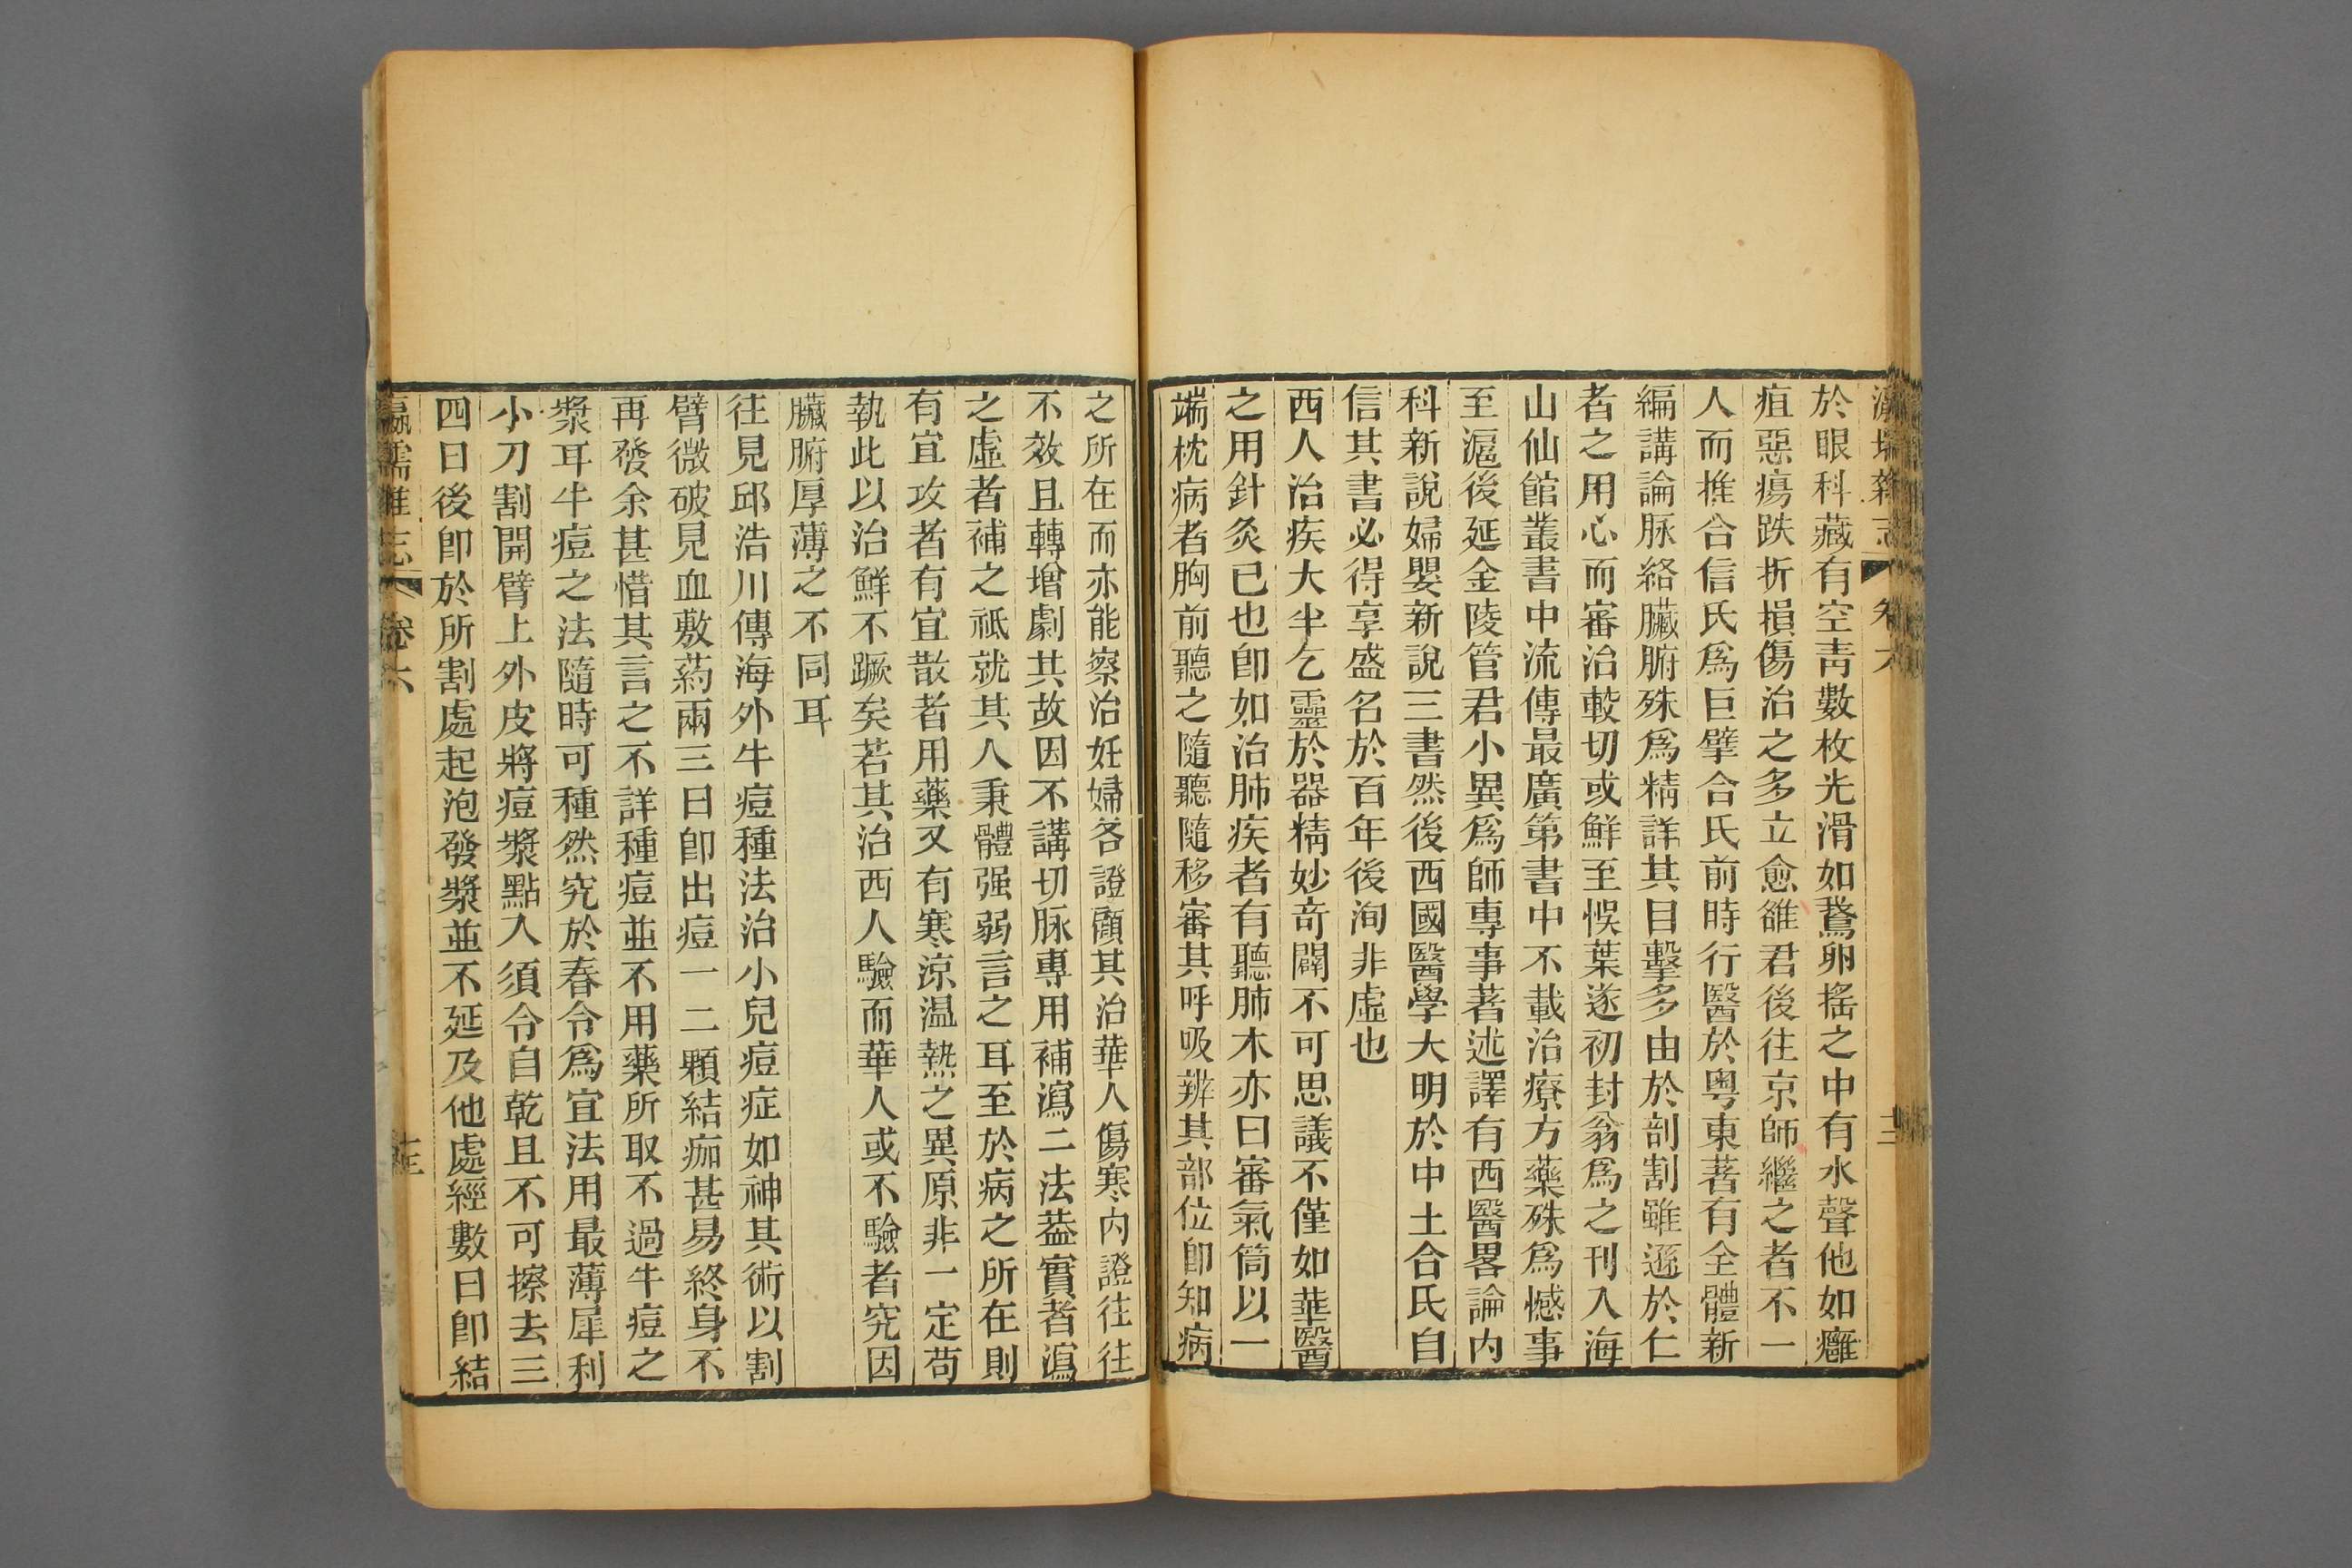 瀛壖雜志 卷六 十二
於眼科藏有空靑數枚光滑如鵞卵搖之中有水聲他如癰
疽惡瘍跌折損傷治之多立愈雒君後往京師繼之者不一
人而推合信氏爲巨擘合氏前時行醫於粤東著有全體新
編講論脉絡臟腑殊爲精詳其目擊多由於剖割雖遜於仁
者之用心而審治較切或鮮至悞葉遂初封翁爲之刊入海
山仙館叢書中流傳最廣第書中不載治療方藥殊爲憾事
至滬後延金陵管君小異爲師專事著述譯有西醫畧論内
科新說婦嬰新說三書然後西國醫學大明於中土合氏自
信其書必得享盛名於百年後洵非虛也
西人治疾大半乞靈於器精妙奇闢不可思議不僅如華醫
之用針灸已也卽如治肺疾者有聽肺木亦曰審氣筒以一
端枕病者胸前聽之隨聽隨移審其呼吸辨其部位卽知病
之所在而亦能察治妊婦各證顧其治華人傷寒内證往往
不效且轉增劇其故因不講切脉專用補瀉二法葢實者瀉
之虛者補之祗就其人秉體强弱言之耳至於病之所在則
有宜攻者有宜散者用藥又有寒涼温熱之異原非一定苟
執此以治鮮不蹶矣若其治西人驗而華人或不驗者究因
臟腑厚薄之不同耳
往見邱浩川傳海外牛痘種法治小兒痘症如神其術以割
臂微破見血敷葯兩三日卽出痘一二顆結痂甚易終身不
再發余甚惜其言之不詳種痘並不用藥所取不過牛痘之
漿耳牛痘之法隨時可種然究於春令爲宜法用最薄犀利
小刀割開臂上外皮將痘漿點入須令自乾且不可擦去三
四日後卽於所割處起泡發漿並不延及他處經數日卽結
瀛壖雜志 卷六 十三